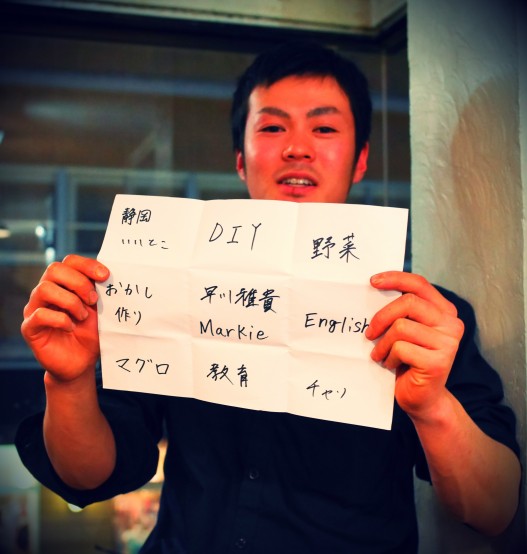 静岡
いいとこ
DIY
野菜
おかし
作り
早川雅貴
Markie
English
マグロ
教育
チャリ